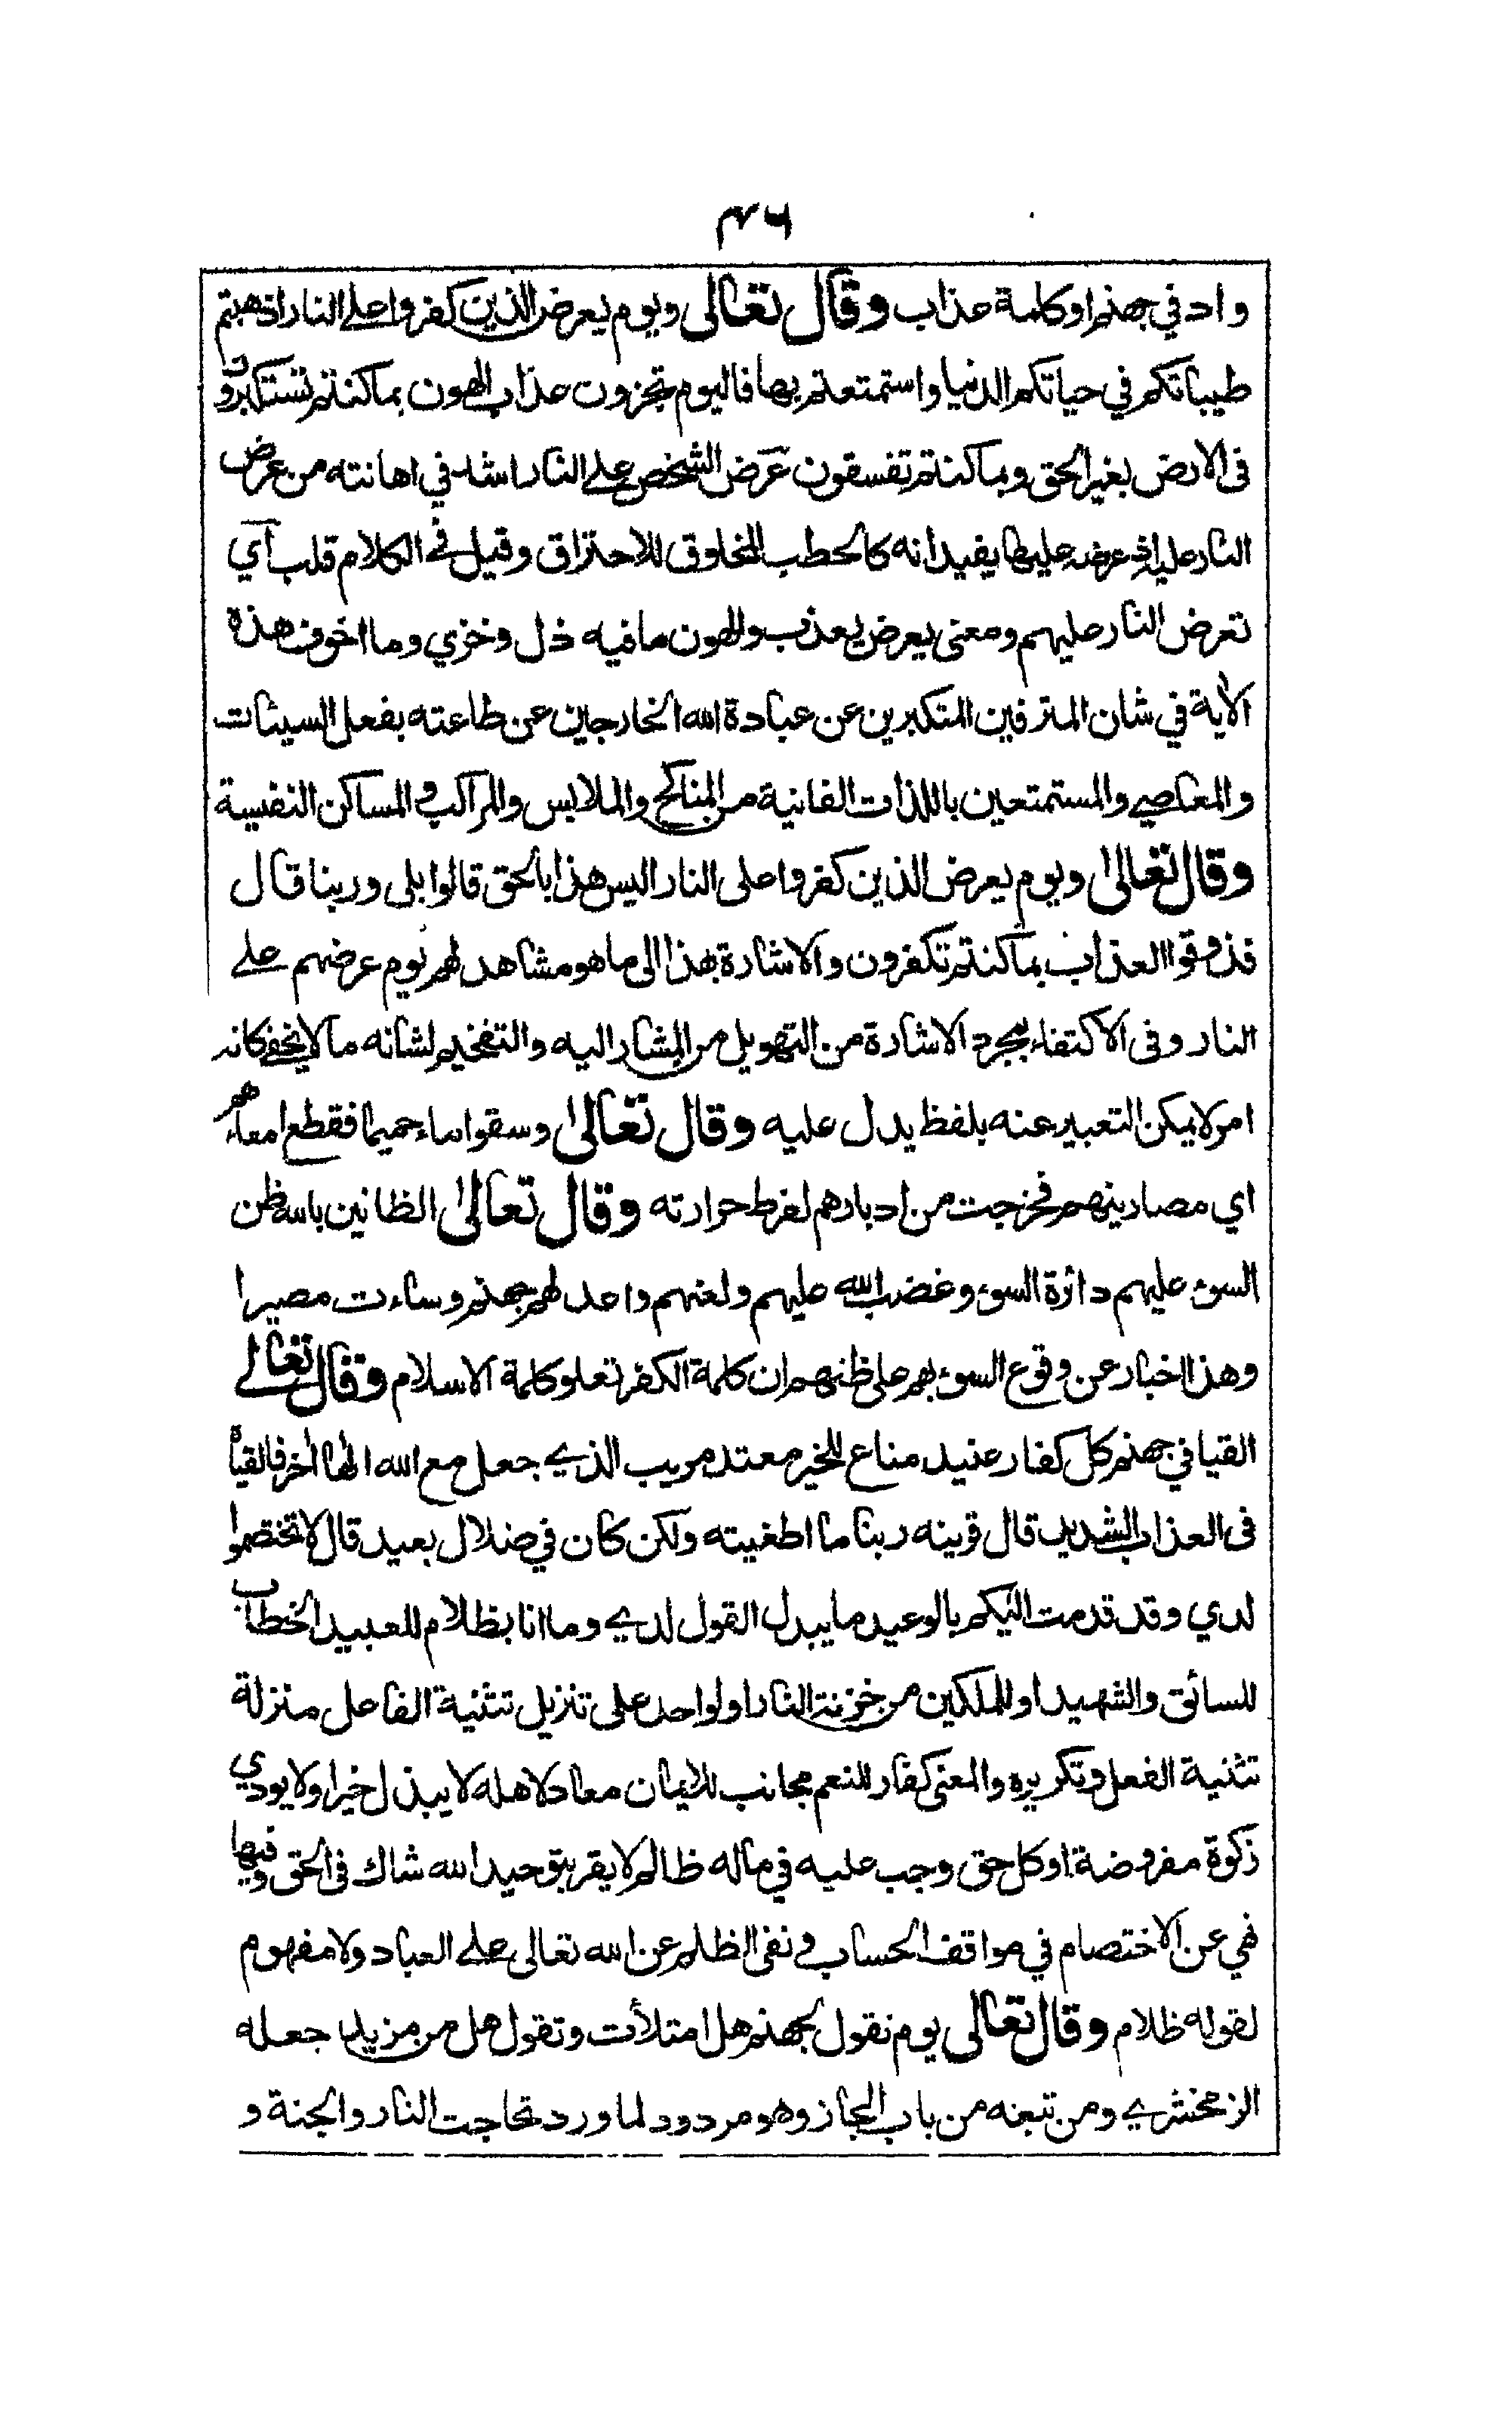 ٣٦
واد في جهنم او كلمة عذاب وقال تعالى ويوم يعرض الذين كفروا على النار اذهبتم
طيباتكم في حياتكم الدنيا واستمتعتم بها فاليوم تجزون عذاب الهون بما كنتم تستكبرون
فى الارض بغير الحق وبما كنتم تفسقون عرض الشخص على النار اشد في اهانته من عرض
النار عليه اذ عرضه عليها يفيد انه كالحطب المخلوق للاحتراق وقيل فى الكلام قلب آي
تعرض النار عليهم ومعنى يعرض يعذب والهون ما فيه ذل وخزي وما اخوف هذه
الآية في شان المترفين المتكبرين عن عبادة الله الخارجين عن طاعته بفعل السيئات
والمعاصي والمستمتعين باللذات الفانية من المناكح والملابس والمراكب والمساكن النفيسة
وقال تعالى ويوم يعرض الذين كفروا على النار اليس هذا بالحق قالوا بلى وربنا قال
فذوقوا العذاب بما كنتم تكفرون والاشارة بهذا الى ما هو مشاهد لهم يوم عرضهم على
النار وفى الاكتفاء بمجرد الاشارة من التهويل من المشار اليه والتفخيم لشانه ما لا يخفى كانه
امر لا يمكن التعبير عنه بلفظ يدل عليه وقال تعالى وسقوا ماء حميما فقطع امعاءهم
اي مصارينهم فخرجت من ادبارهم لفرط حرارته وقال تعالى الظانين بالله ظن
السوء عليهم دائرة السوء وغضب الله عليهم ولعنهم واعد لهم جهنم وساءت مصيرا
وهذا اخبار عن وقوع السوء بهم على ظنهم ان كلمة الكفر تعلو كلمة الاسلام وقال تعالى
القيا في جهنم كل كفار عنيد مناع للخير معتد مريب الذي جعل مع الله الها آخر فالقياه
فى العذاب الشديد قال قرينه ربنا ما اطغيته ولكن كان في ضلال بعيد قال لا تختصموا
لدي وقد قدمت اليكم بالوعيد ما يبدل القول لدي وما انا بظلام للعبيد الخطاب
للسائق والشهيد او للملكين من خزنة النار او لواحد على تنزيل تثنية الفاعل منزلة
تثنية الفعل وتكريره والمعنى كفار للنعم مجانب للايمان معاد لاهله لا يبذل خيرا ولا يودي
زكوة مفروضة او كل حق وجب عليه في ماله ظالم لا يقر بتوحيد الله شاك فى الحق وفيها
نهي عن الاختصام في مواقف الحساب ونفى الظلم عن الله تعالى على العباد ولا مفهوم
لقوله ظلام وقال تعالى يوم نقول لجهنم هل امتلأت وتقول هل من مزيد جعله
الزمخشري ومن تبعه من باب المجاز وهو مردود لما ورد تحاجت النار والجنة و